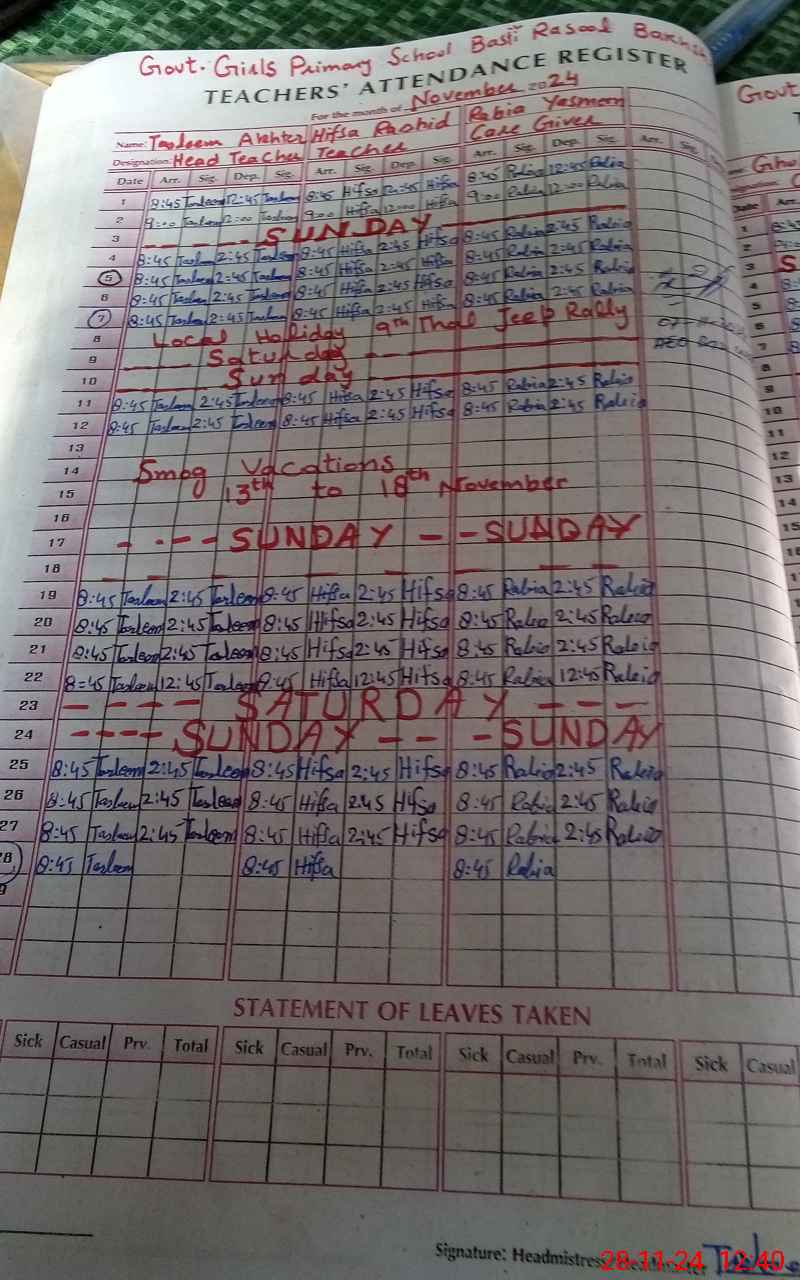 Govt. Girls Primary School Basti Rasool Bakhsh
TEACHERS' ATTENDANCE REGISTER
For the month of November 2024
Name: Tasleem Akhter Hifsa Rashid Rabia Yasmeen
Designation: Head Teacher Teacher Care Giver
Date Arr. Sig. Dep. Sig. Arr. Sig. Dep. Sig. Arr. Sig. Dep. Sig. Arr. Sig.
1 8:45 Tasleem 12:45 Tasleem 8:45 Hifsa 12:45 Hifsa 8:45 Rabia 12:45 Rabia
2 9:00 Tasleem 12:00 Tasleem 9:00 Hifsa 12:00 Hifsa 9:00 Rabia 12:00 Rabia
3 SUNDAY
4 8:45 Tasleem 2:45 Tasleem 8:45 Hifsa 2:45 Hifsa 8:45 Rabia 2:45 Rabia
5 8:45 Tasleem 2:45 Tasleem 8:45 Hifsa 2:45 Hifsa 8:45 Rabia 2:45 Rabia
6 8:45 Tasleem 2:45 Tasleem 8:45 Hifsa 2:45 Hifsa 8:45 Rabia 2:45 Rabia
7 8:45 Tasleem 2:45 Tasleem 8:45 Hifsa 2:45 Hifsa 8:45 Rabia 2:45 Rabia
8 Local Holiday 9th Thal Jeep Rally
9 Saturday
10 Sunday
11 8:45 Tasleem 2:45 Tasleem 8:45 Hifsa 2:45 Hifsa 8:45 Rabia 2:45 Rabia
12 8:45 Tasleem 2:45 Tasleem 8:45 Hifsa 2:45 Hifsa 8:45 Rabia 2:45 Rabia
13
14 Smog Vacations
15 13th to 18th November
16
17 - - - - SUNDAY - - - SUNDAY
18
19 8:45 Tasleem 2:45 Tasleem 8:45 Hifsa 2:45 Hifsa 8:45 Rabia 2:45 Rabia
20 8:45 Tasleem 2:45 Tasleem 8:45 Hifsa 2:45 Hifsa 8:45 Rabia 2:45 Rabia
21 8:45 Tasleem 2:45 Tasleem 8:45 Hifsa 2:45 Hifsa 8:45 Rabia 2:45 Rabia
22 8:45 Tasleem 12:45 Tasleem 8:45 Hifsa 12:45 Hifsa 8:45 Rabia 12:45 Rabia
23 - - - - SATURDAY - - -
24 - - - - SUNDAY - - - SUNDAY
25 8:45 Tasleem 2:45 Tasleem 8:45 Hifsa 2:45 Hifsa 8:45 Rabia 2:45 Rabia
26 8:45 Tasleem 2:45 Tasleem 8:45 Hifsa 2:45 Hifsa 8:45 Rabia 2:45 Rabia
27 8:45 Tasleem 2:45 Tasleem 8:45 Hifsa 2:45 Hifsa 8:45 Rabia 2:45 Rabia
28 8:45 Tasleem 8:45 Hifsa 8:45 Rabia
STATEMENT OF LEAVES TAKEN
Sick Casual Prv. Total Sick Casual Prv. Total Sick Casual Prv. Total Sick Casual
Signature: Headmistress
28-11-24 12:40